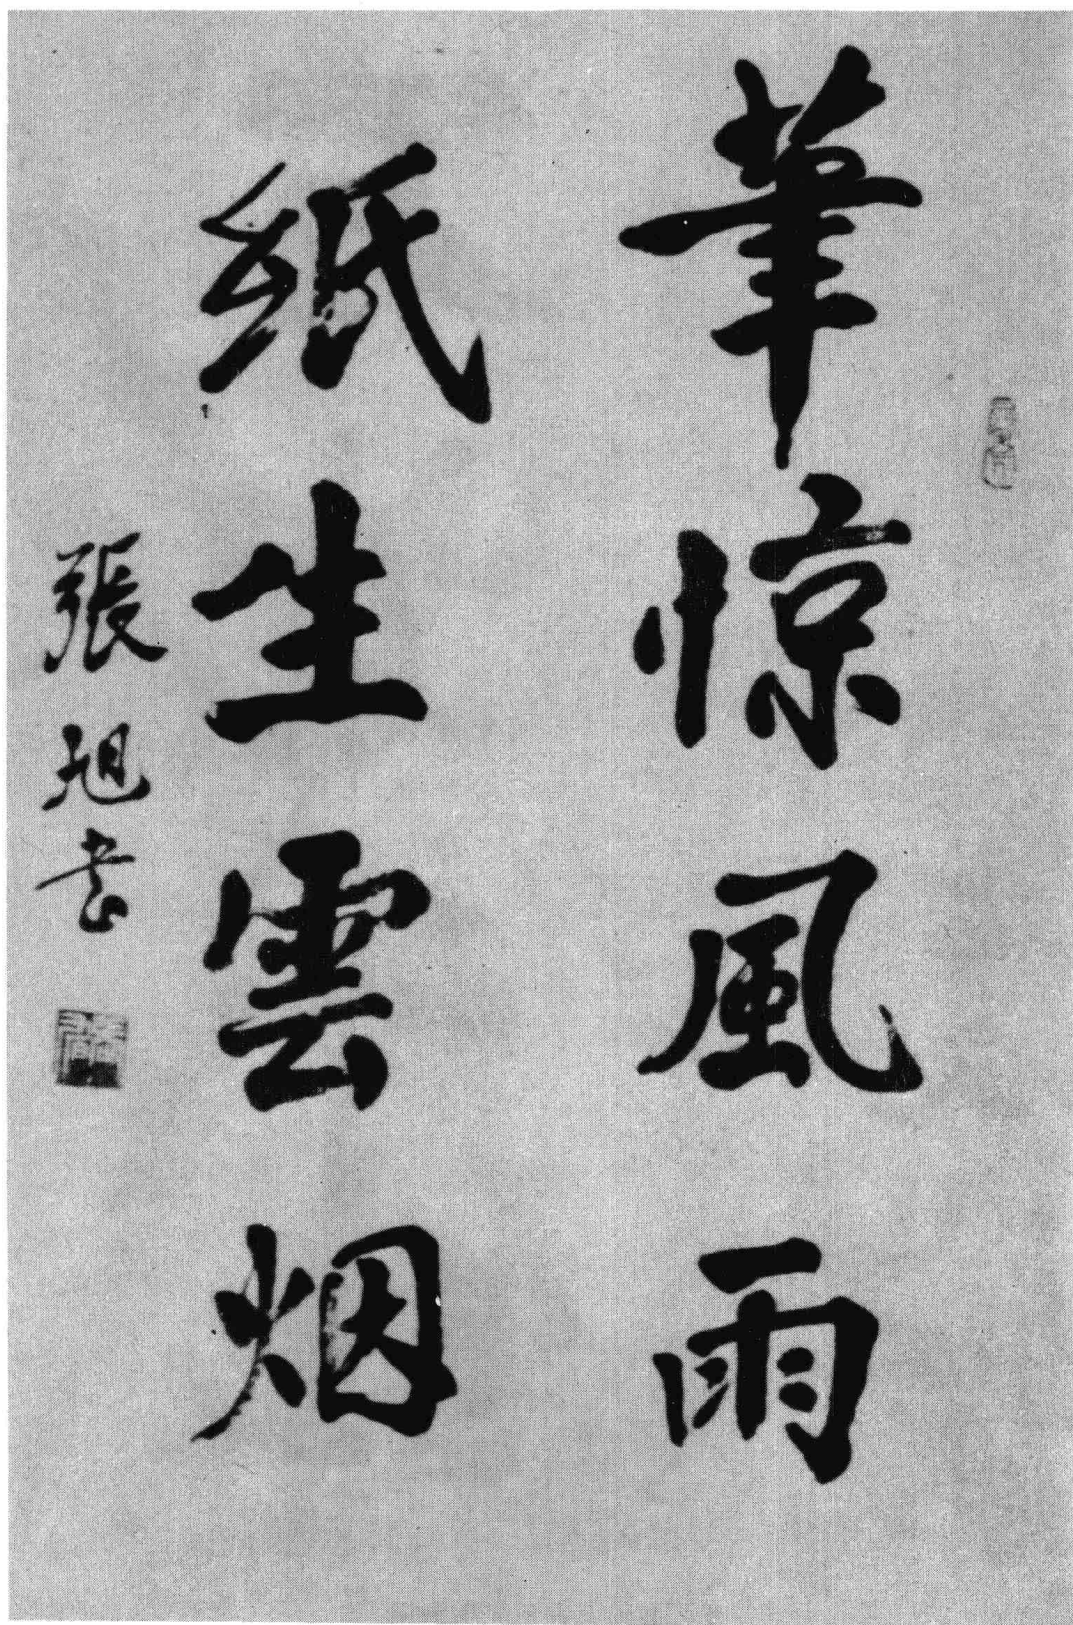 筆惊風雨
紙生雲烟
張旭书